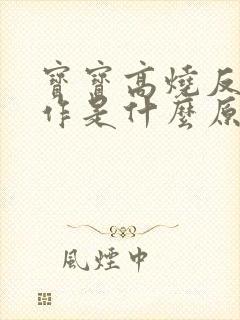 寶寶高燒反
作是什麼原
風煙中